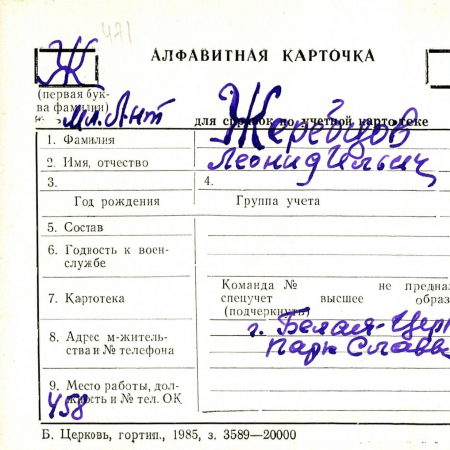 471
АЛФАВИТНАЯ КАРТОЧКА
Ж
(первая бук-
ва фамилии)
Мл. Л-нт
для справок по учетной картотеке
1. Фамилия Жеребцов
2. Имя, отчество Леонид Ильич
3. 4.
Год рождения Группа учета
5. Состав
6. Годность к воен-
службе
Команда № не предна
7. Картотека спецучет высшее образ
(подчеркнуть)
г. Белая-Церк
8. Адрес м-житель-
ства и № телефона Парк Славы
9. Место работы, дол-
жность и № тел. ОК
458
Б. Церковь, гортип., 1985, з. 3589—20000